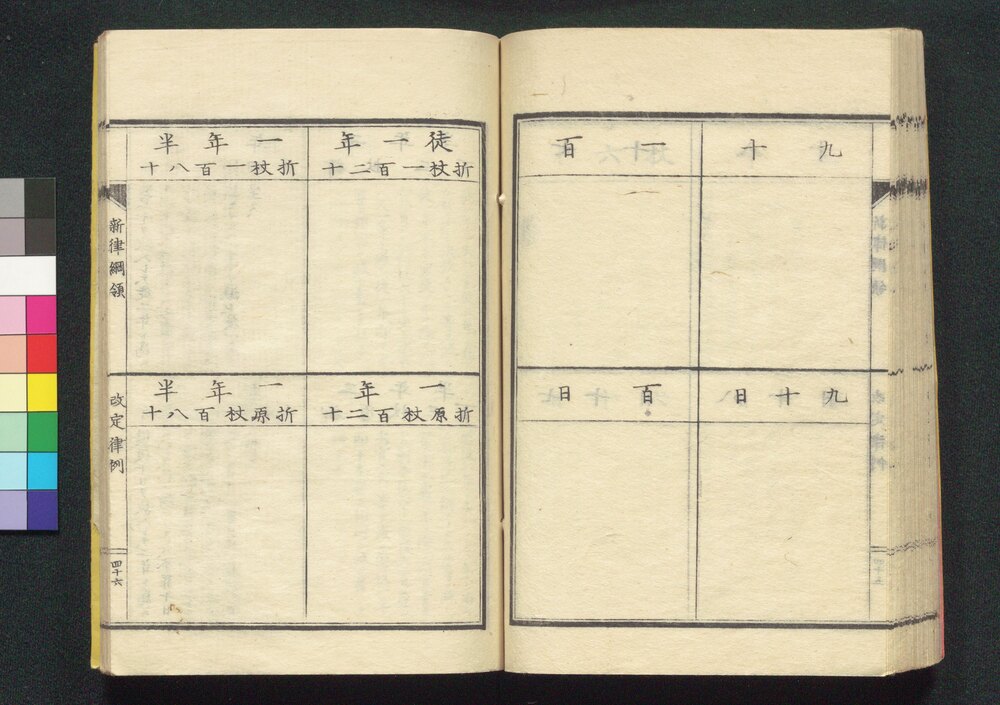 九十
一百
九十日
百日
徒一年
折杖一百二十
一年半
折杖一百八十
一年
折原杖百二十
一年半
折原杖百八十
新律綱領
改定律例
四十六